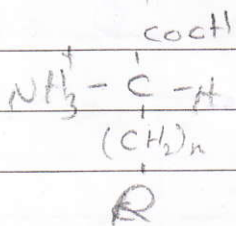 COCH
+
NH3 - C - H
(CH2)n
R